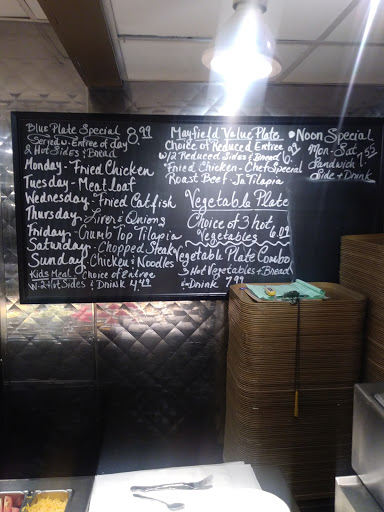 Blue Plate Special 8.99
Served w. Entree of day
2 Hot Sides & Bread
Monday - Fried Chicken
Tuesday - Meat Loaf
Wednesday - Fried Catfish
Thursday - Liver & Onions
Friday - Crumb Top Tilapia
Saturday - Chopped Steak
Sunday Chicken & Noodles
Kids Meal - Choice of Entree
W-2 Hot Sides & Drink 4.49
Mayfield Value Plate
Choice of Reduced Entree
w/2 Reduced Sides & Bread 6.99
Fried Chicken - Chef Special
Roast Beef - Tilapia
Vegetable Plate
Choice of 3 hot
Vegetables 6.09
Vegetable Plate Combo
3 Hot Vegetables + Bread
& Drink 7.99
Noon Special
Mon - Sat,
Sandwich
Side & Drink